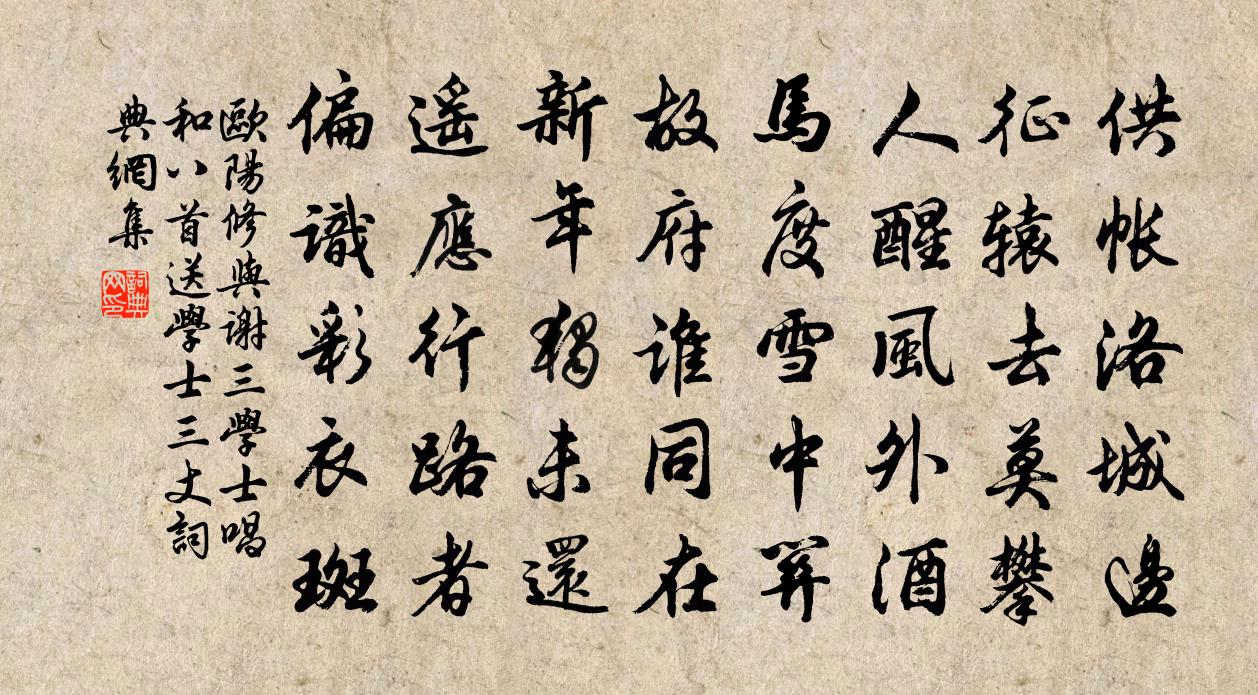 供帳洛城邊
征辕去莫攀
人醒風外酒
馬度雪中關
故府誰同在
新年獨未還
遥應行路者
偏識彩衣斑
歐陽修與謝三學士唱
和八首送學士三丈詞
典網集
詞典網印